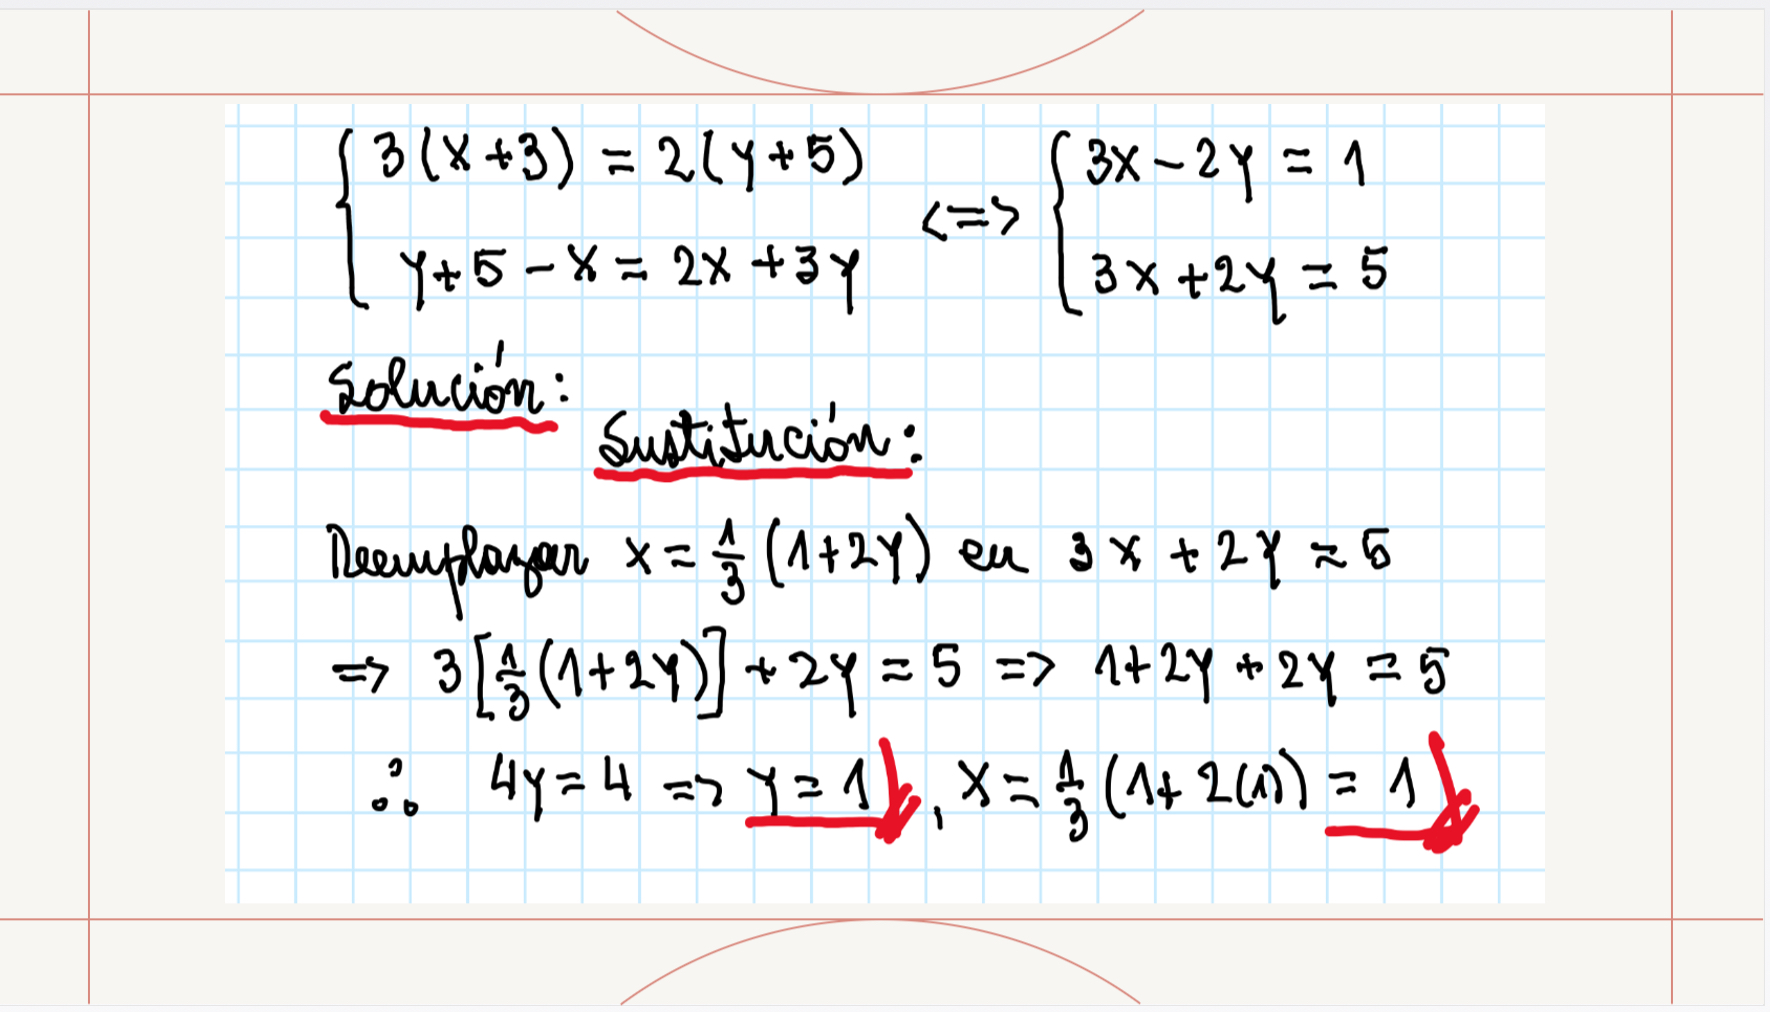 { 3(x+3) = 2(y+5) <=> { 3x - 2y = 1
y + 5 - x = 2x + 3y 3x + 2y = 5
Solución:
Sustitución:
Reemplazar x = 1/3 (1+2y) en 3x + 2y = 5
=> 3[1/3(1+2y)] + 2y = 5 => 1+2y + 2y = 5
∴ 4y = 4 => y = 1, x = 1/3 (1+2(1)) = 1